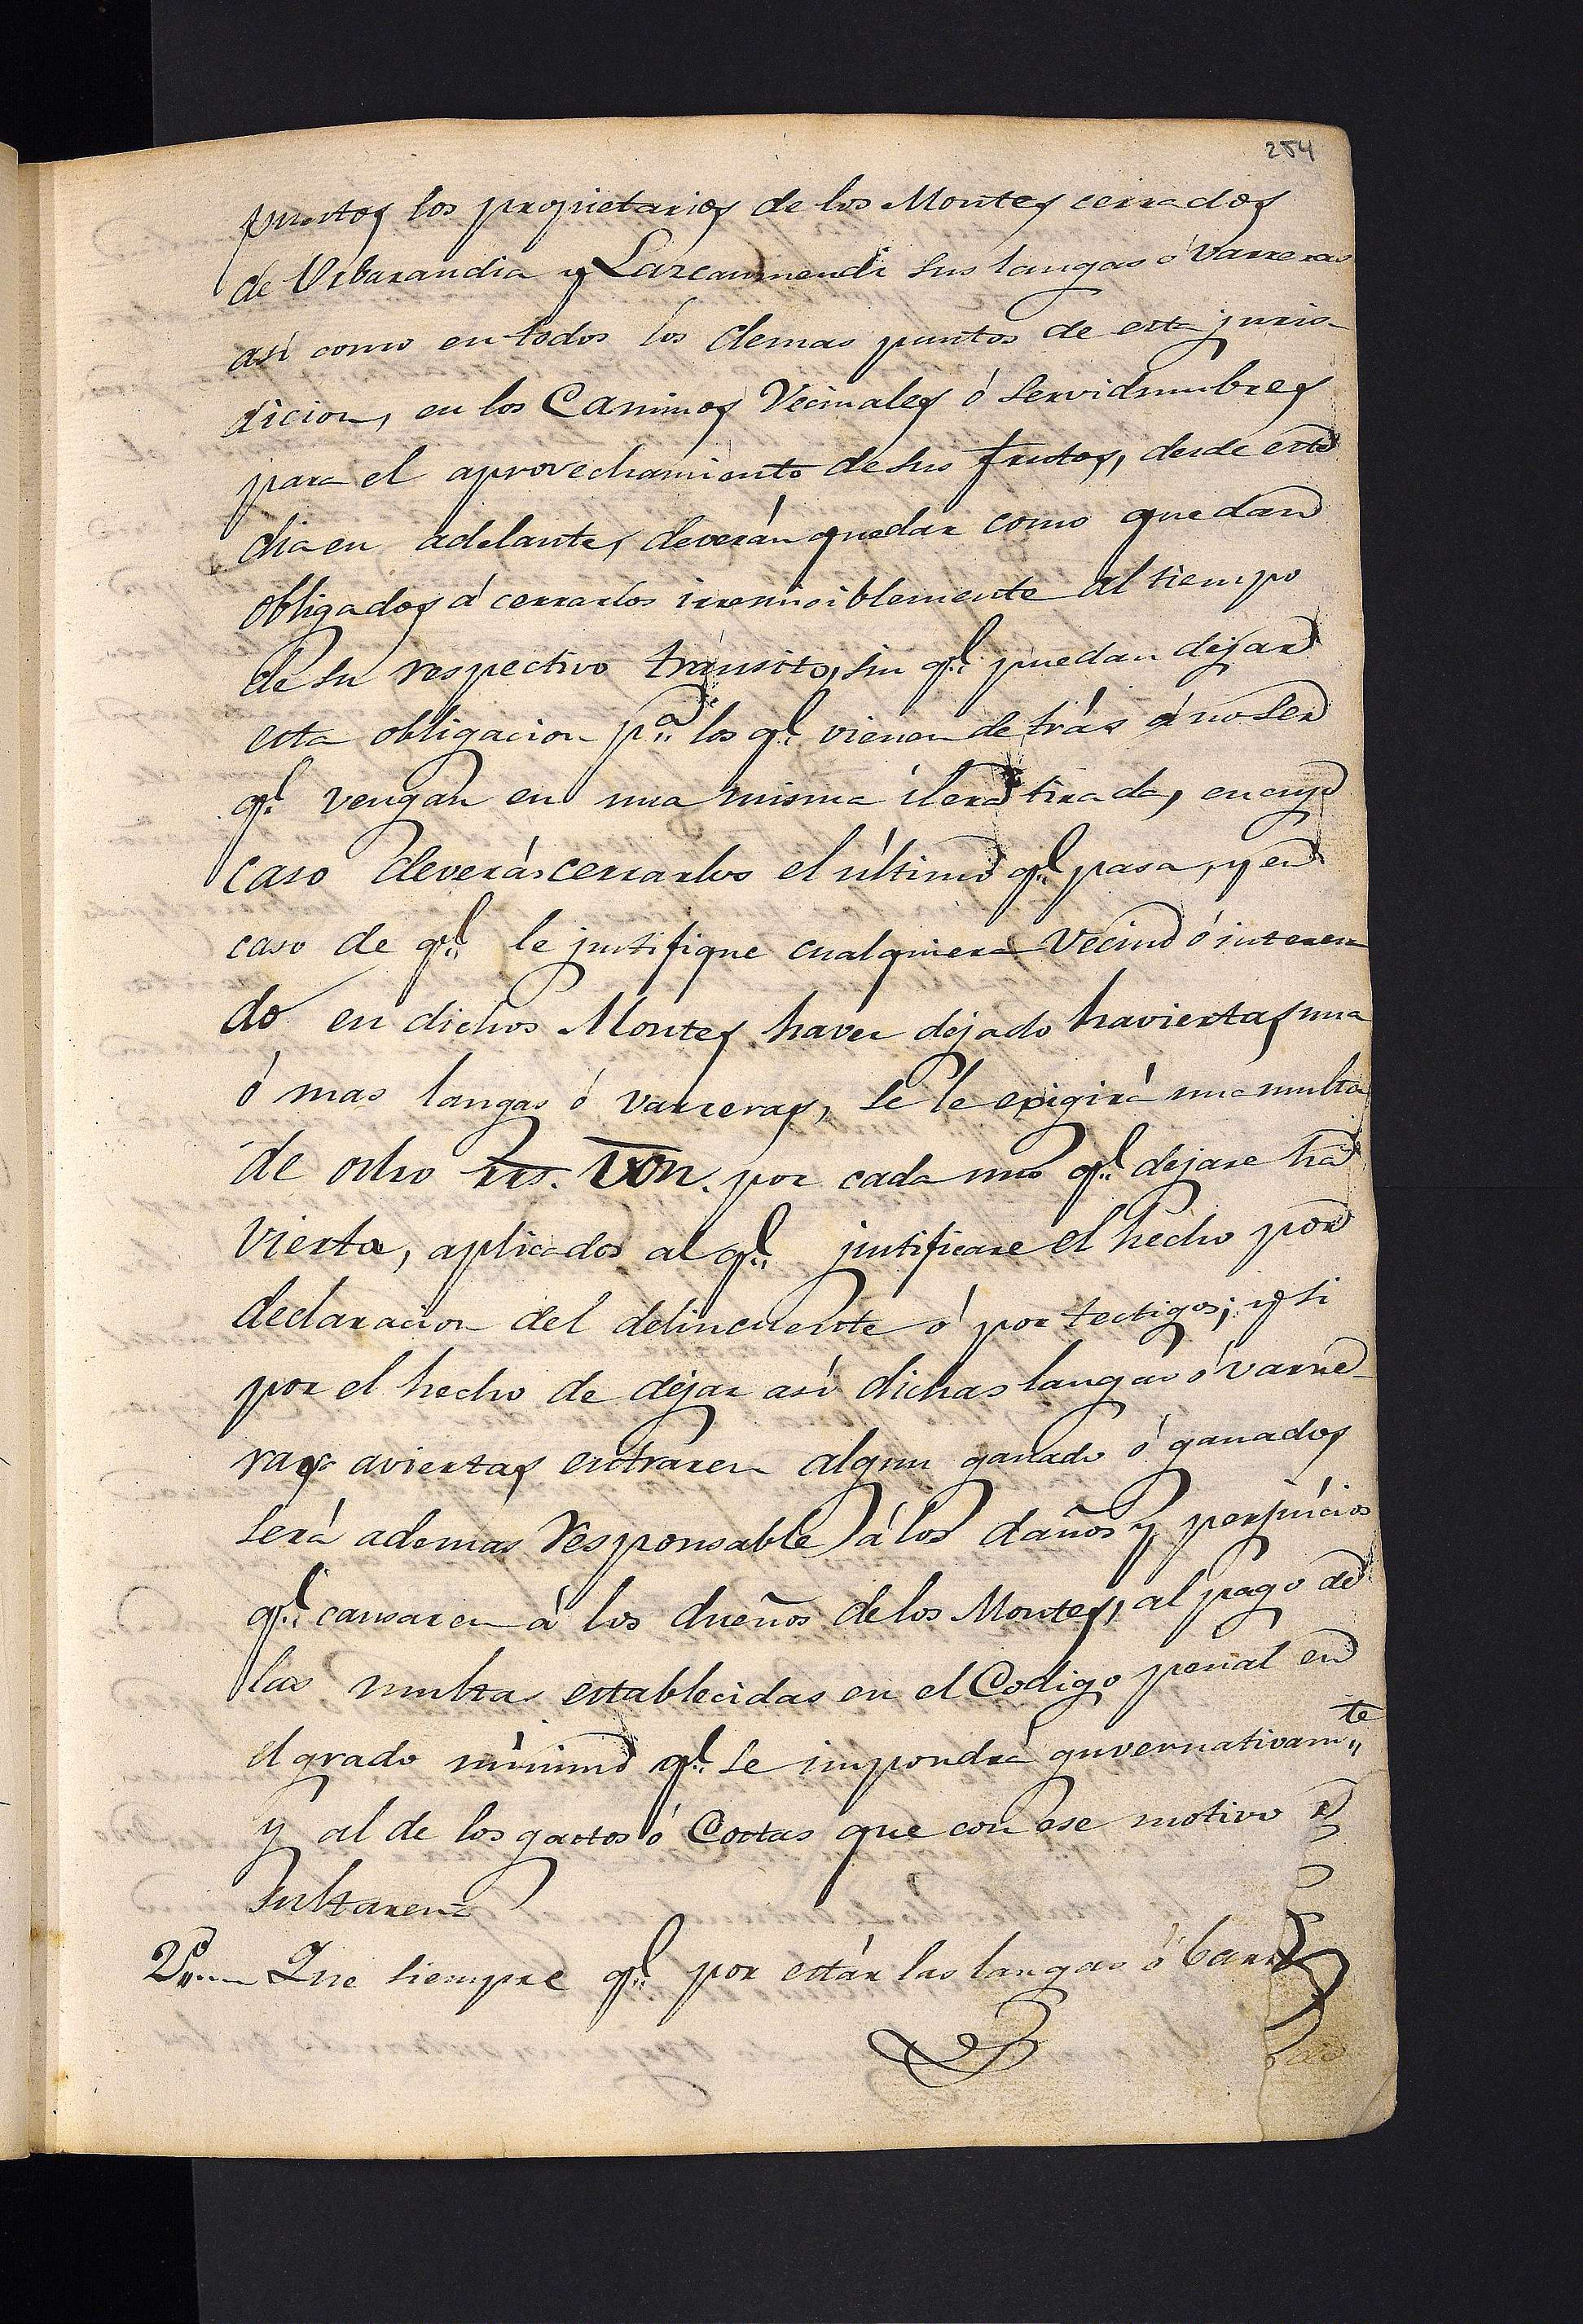 254
puestos los propietarios de los Montes cerrados
de Urbarandia y Lazcaumendi sus langas ó varreras
así como en todos los demas puntos de esta juris-
dicion, en los Caminos Vecinales ó servidumbres
para el aprovechamiento de sus frutos, desde este
dia en adelante, deverán quedar como quedan
obligados á cerrarlos irremisiblemente al tiempo
de su respectivo tránsito, sin q.e puedan dejar
esta obligacion p.a los q.e vienen de trás á no ser
q.e vengan en una misma ilera tirada, en cuyo
caso deverá cerrarlos el último q.e pasa, y en
caso de q.e le justifique cualquiera Vecino ó interesa
do en dichos Montes haver dejado haviertas una
ó mas langas ó varreras, se le exigirá una multa
de ocho rrs. von. por cada uno q.e dejare ha
vierta, aplicados al q.e justificare el hecho por
declaracion del delincuente ó por testigos; y si
por el hecho de dejar así dichas langas ó varre-
ras aviertas entraren algun ganado ó ganados
será ademas responsable á los daños y perjuicios
q.e causaren á los dueños de los Montes, al pago de
las multas establecidas en el Codigo penal en
el grado mínimo q.e se impondrá guvernativam.te
y al de los gastos ó Costas que con ese motivo re
sultaren
2.o Que siempre q.e por estár las langas ó barre
ras